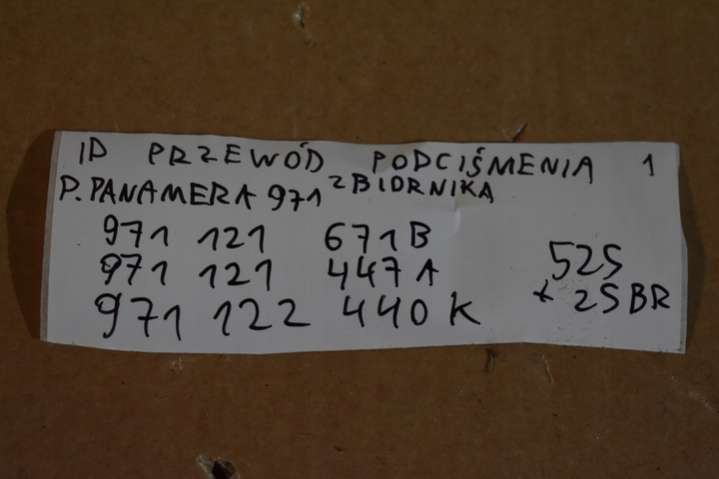 ID PRZEWÓD PODCIŚMENIA 1
P. PANAMERA 971 ZBIORNIKA
971 121 671B
971 121 447A 525
971 122 440K + 25BR